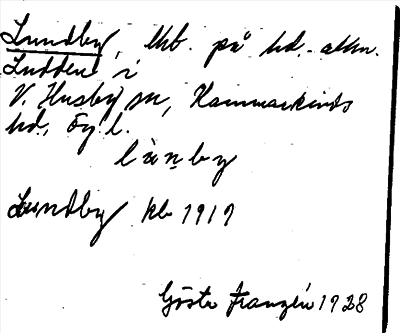 Lundby, lkt. på hd.-allm.
Ludden i
V. Husby sn, Hammarkinds
hd, Ög l.
lùn̥by
Lundby kb 1917
Gösta Franzén 1928